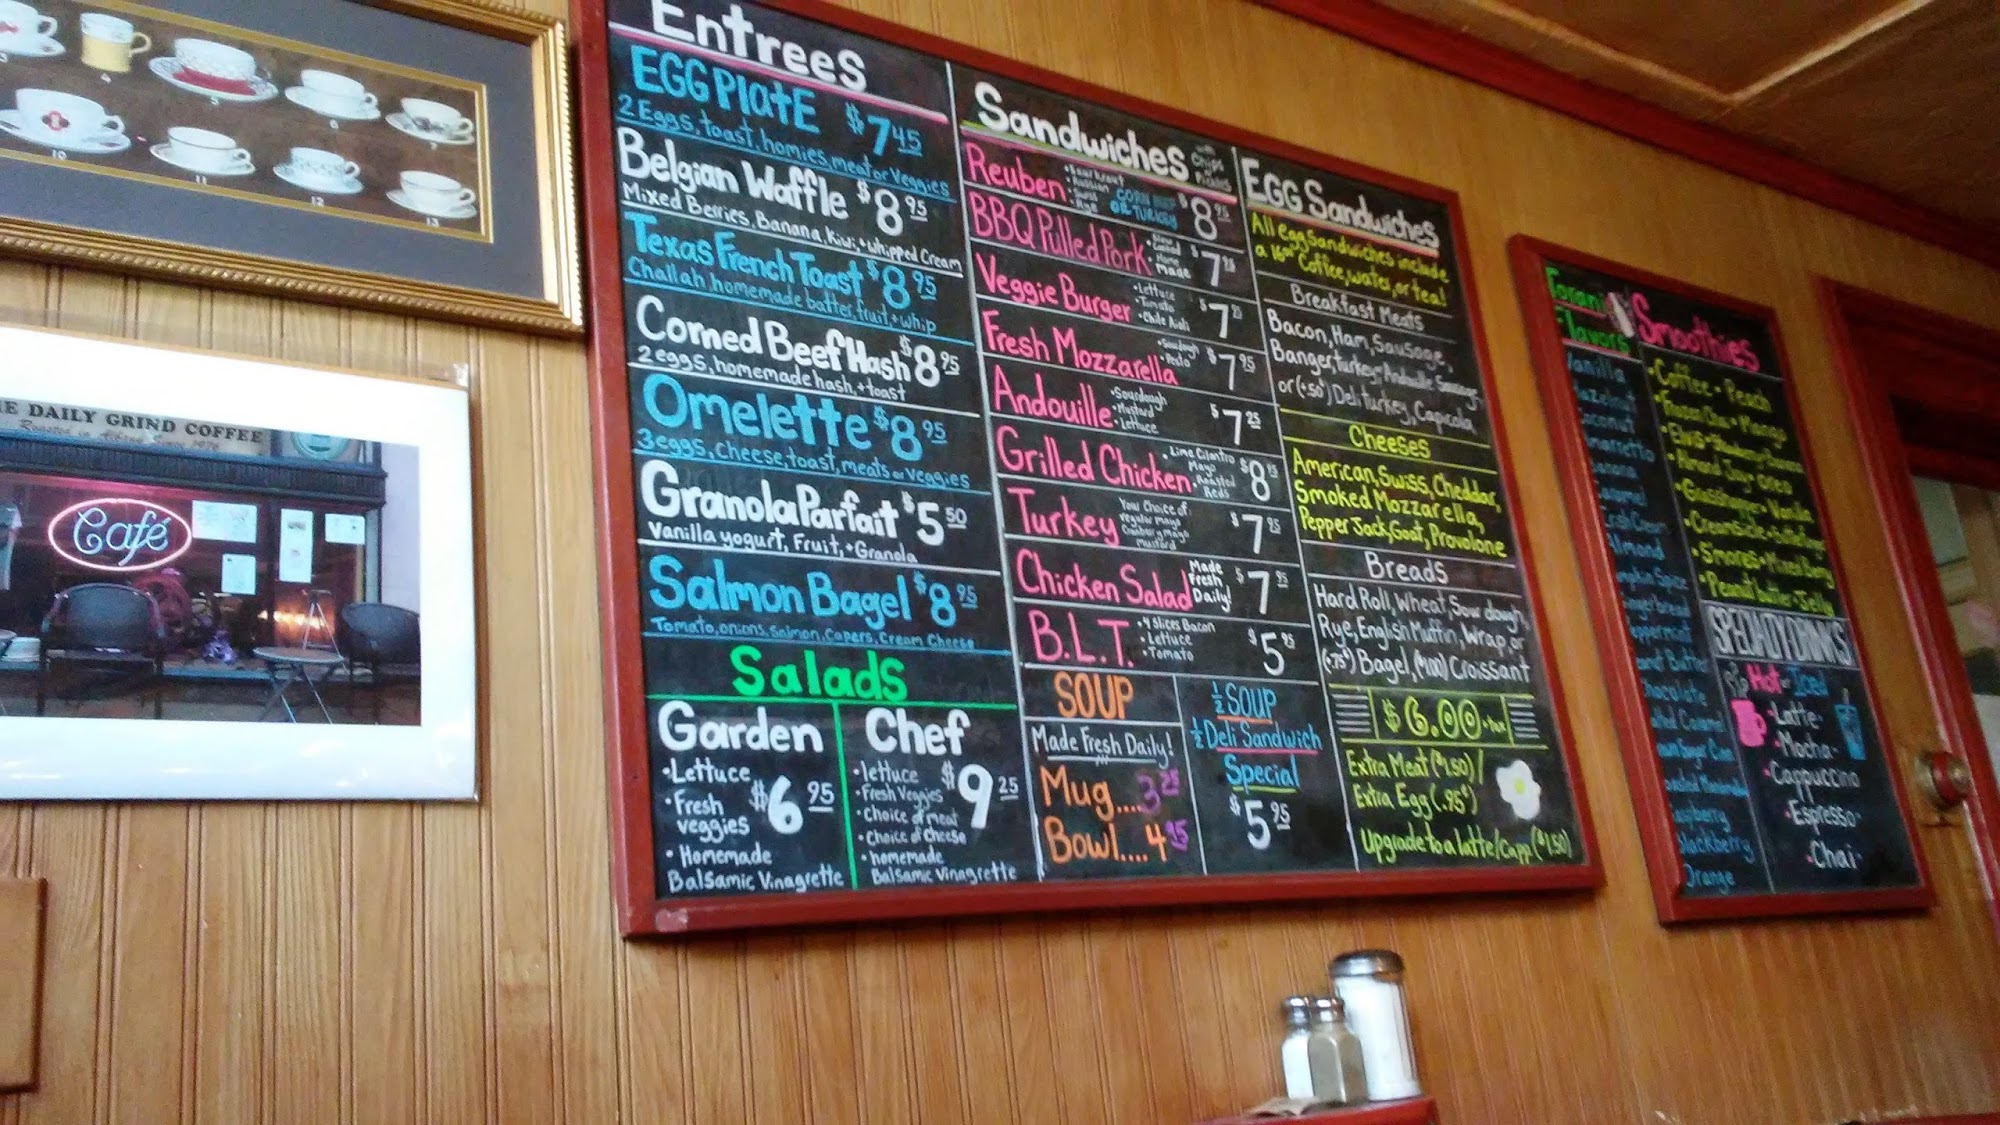 3
4
5
6
7
10
11
12
13
E DAILY GRIND COFFEE
Roasted in Albany Since 1976
Café
Entrees
EGG PlatE $7 45
2 Eggs, toast, homies, meat or Veggies
Belgian Waffle $8 95
Mixed Berries, Banana, Kiwi, + whipped Cream
Texas French Toast $8 95
Challah, homemade batter, fruit, + whip
Corned Beef Hash $8 95
2 eggs, homemade hash, + toast
Omelette $8 95
3 eggs, Cheese, toast, meats or Veggies
Granola Parfait $5 50
Vanilla yogurt, Fruit, + Granola
Salmon Bagel $8 95
Tomato, onions, Salmon, Capers, Cream Cheese
Salads
Garden
•Lettuce
•Fresh veggies
$6 95
•Homemade
Balsamic Vinagrette
Chef
•lettuce
•Fresh Veggies
•Choice of meat
•Choice of cheese
$9 25
•homemade
Balsamic Vinagrette
Sandwiches with Chips + Pickles
Reuben •Sauerkraut •Russian •Swiss •Rye CORN BEEF OR TURKEY $8 95
BBQ Pulled Pork •Slow Cooked •Home Made $7
Veggie Burger •Lettuce •Tomato •Chile Aioli $7
Fresh Mozzarella •Sourdough •Pesto $7 95
Andouille •Sourdough •Mustard •Lettuce $7 25
Grilled Chicken •Lime Cilantro Mayo •Roasted Reds $8
Turkey Your Choice of: regular mayo cranberry mayo mustard $7 95
Chicken Salad Made Fresh Daily! $7 95
B.L.T. •4 Slices Bacon •Lettuce •Tomato $5 95
SOUP
Made Fresh Daily!
Mug....3 25
Bowl....4 95
½ SOUP
½ Deli Sandwich
Special
$5 95
EGG Sandwiches
All egg sandwiches include
a 16oz Coffee, water, or tea!
Breakfast Meats
Bacon, Ham, Sausage,
Banger, Turkey, Andouille Sausage,
or (+.50¢) Deli turkey, Capicola
Cheeses
American, Swiss, Cheddar,
Smoked Mozzarella,
Pepper Jack, Goat, Provolone
Breads
Hard Roll, Wheat, Sour dough,
Rye, English Muffin, Wrap, or
(+.75¢) Bagel, (+1.00) Croissant
$6.00 +tax
Extra Meat ($1.50) /
Extra Egg (.95¢)
Upgrade to a latte/Capp. ($1.50)
Torani Flavors
Vanilla
Hazelnut
Coconut
Amaretto
Banana
Caramel
Irish Cream
Almond
Pumpkin Spice
Gingerbread
Peppermint
Chocolate
Salted Caramel
Raspberry
Blackberry
Orange
Smoothies
•Coffee •Peach
•Frozen Chai •Mango
•Almond Joy •Oreo
•Grasshopper •Vanilla
•Creamsicle •Butterfinger
•Smores •Mixed Berry
•Peanut butter + Jelly
SPECIALTY DRINKS
Hot or Iced
•Latte•
•Mocha•
•Cappuccino
•Espresso•
•Chai•